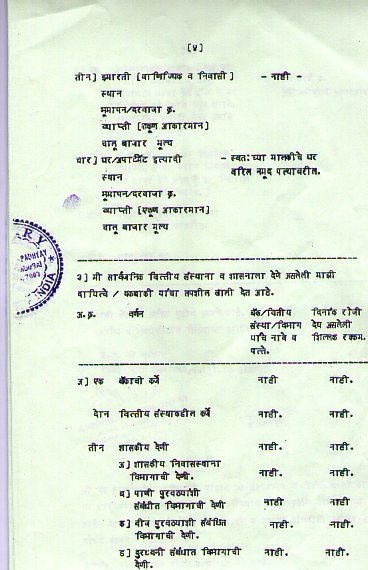 [४]
तीन] इमारती [वाणिज्यिक व निवासी] - नाही -
स्थान
भूमापन/दरवाजा क्र.
व्याप्ती [एकूण आकारमान]
चालू बाजार मूल्य
चार] घर/अपार्टमेंट इत्यादी - स्वतः च्या मालकीचे घर
स्थान वरिल नमूद पत्यावरील.
भूमापन/दरवाजा क्र.
व्याप्ती [एकूण आकारमान]
चालू बाजार मूल्य
३] मी सार्वजनिक वित्तीय संस्थांना व शासनाला देणे असलेली माझी
दायित्वे / थकबाकी यांचा तपशील खाली देत आहे.
अ.क्र. वर्णन बँक/वित्तीय दिनांक रोजी
संस्था/विभाग देय असलेली
यांचे नावे व शिल्लक रक्कम.
पत्ते.
अ] एक बँकाची कर्जे नाही नाही.
दोन वित्तीय संस्थाकडील कर्जे नाही. नाही.
तीन शासकीय देणी नाही. नाही.
अ] शासकीय निवासस्थाना नाही. नाही.
विभागाची देणी.
ब] पाणी पुरवठ्याशी नाही नाही
संबंधीत विभागाची देणी
क] वीज पुरवठ्याशी संबंधित नाही. नाही.
विभागाची देणी.
ड] दुरध्वनी संबधात विभागाची नाही. नाही.
देणी.
INDIA